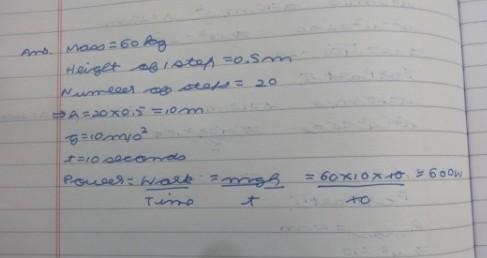 Ans. Mass = 60 kg
Height of 1 step = 0.5 m
Number of steps = 20
⇒ h = 20 x 0.5 = 10 m
g = 10 m/s²
t = 10 seconds
Power = Work = mgh = 60 x 10 x 10 = 600W
Time t 10